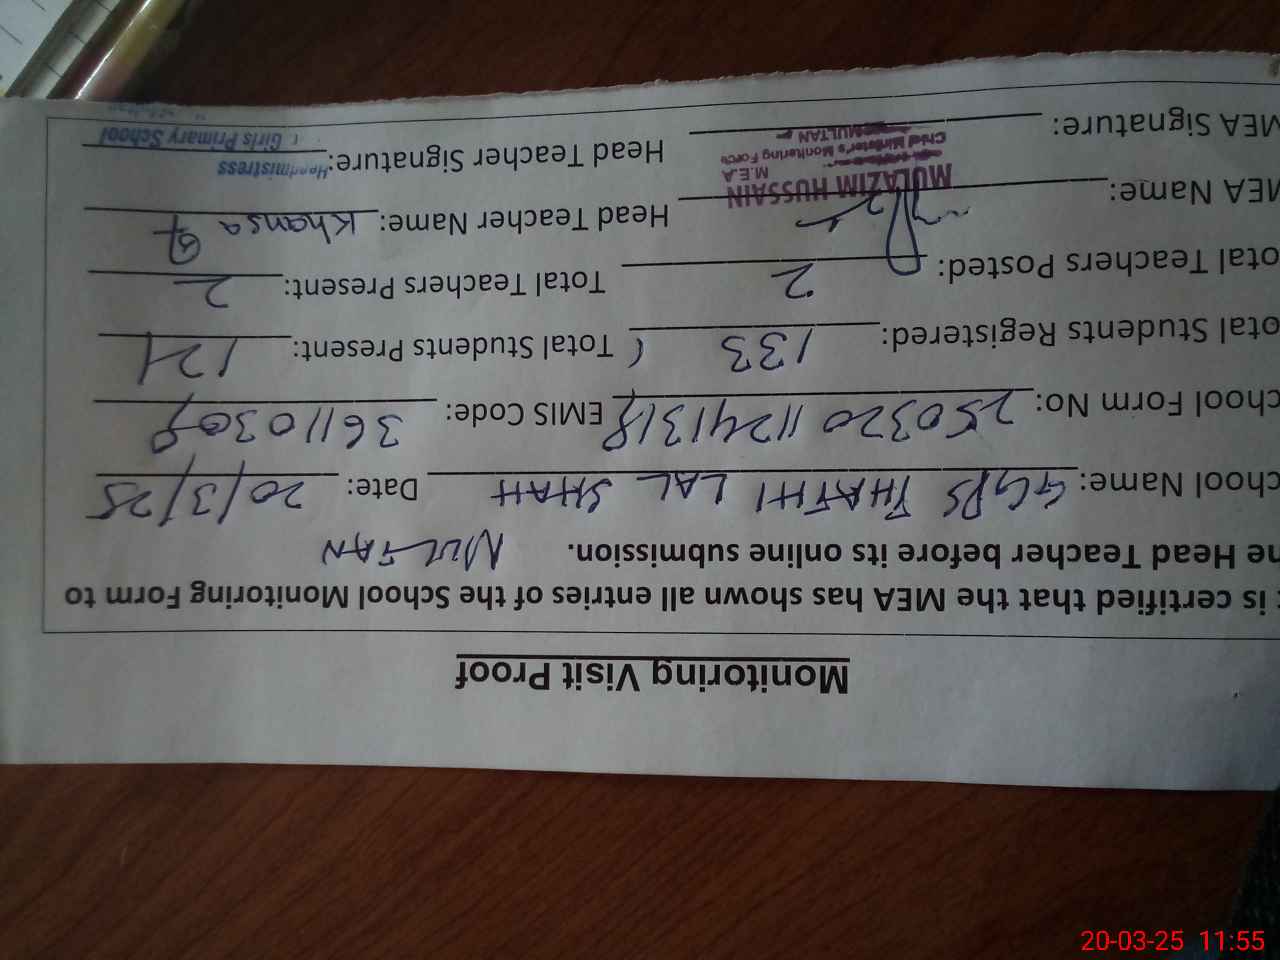 Monitoring Visit Proof
is certified that the MEA has shown all entries of the School Monitoring Form to
he Head Teacher before its online submission. MULTAN
chool Name: GGPS THATHI LAL SHAH Date: 20/3/25
chool Form No: 250320112413 EMIS Code: 3611030
otal Students Registered: 133 Total Students Present: 121
otal Teachers Posted: 2 Total Teachers Present: 2
MEA Name: Head Teacher Name: Khansa
MULAZIM HUSSAIN
M.E.A
Chief Minister's Monitoring Force
MULTAN
MEA Signature: Head Teacher Signature:
Headmistress
Girls Primary School
20-03-25 11:55